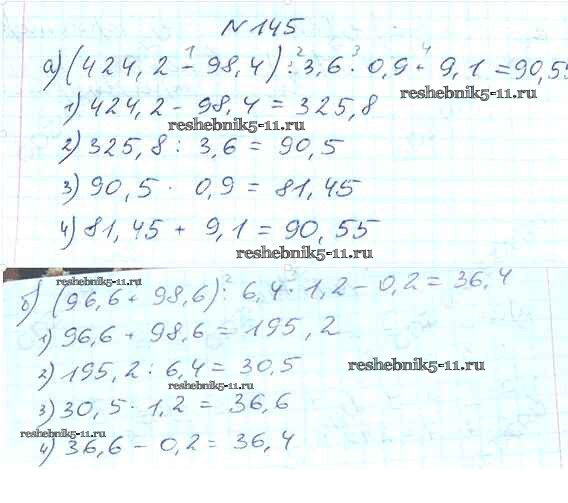 № 145
а) (424,2 - 98,4) : 3,6 · 0,9 + 9,1 = 90,55
1) 424,2 - 98,4 = 325,8
reshebnik5-11.ru
reshebnik5-11.ru
2) 325,8 : 3,6 = 90,5
3) 90,5 · 0,9 = 81,45
4) 81,45 + 9,1 = 90,55
reshebnik5-11.ru
reshebnik5-11.ru
б) (96,6 + 98,6) : 6,4 · 1,2 - 0,2 = 36,4
1) 96,6 + 98,6 = 195,2
2) 195,2 : 6,4 = 30,5
reshebnik5-11.ru
reshebnik5-11.ru
3) 30,5 · 1,2 = 36,6
reshebnik5-11.ru
4) 36,6 - 0,2 = 36,4